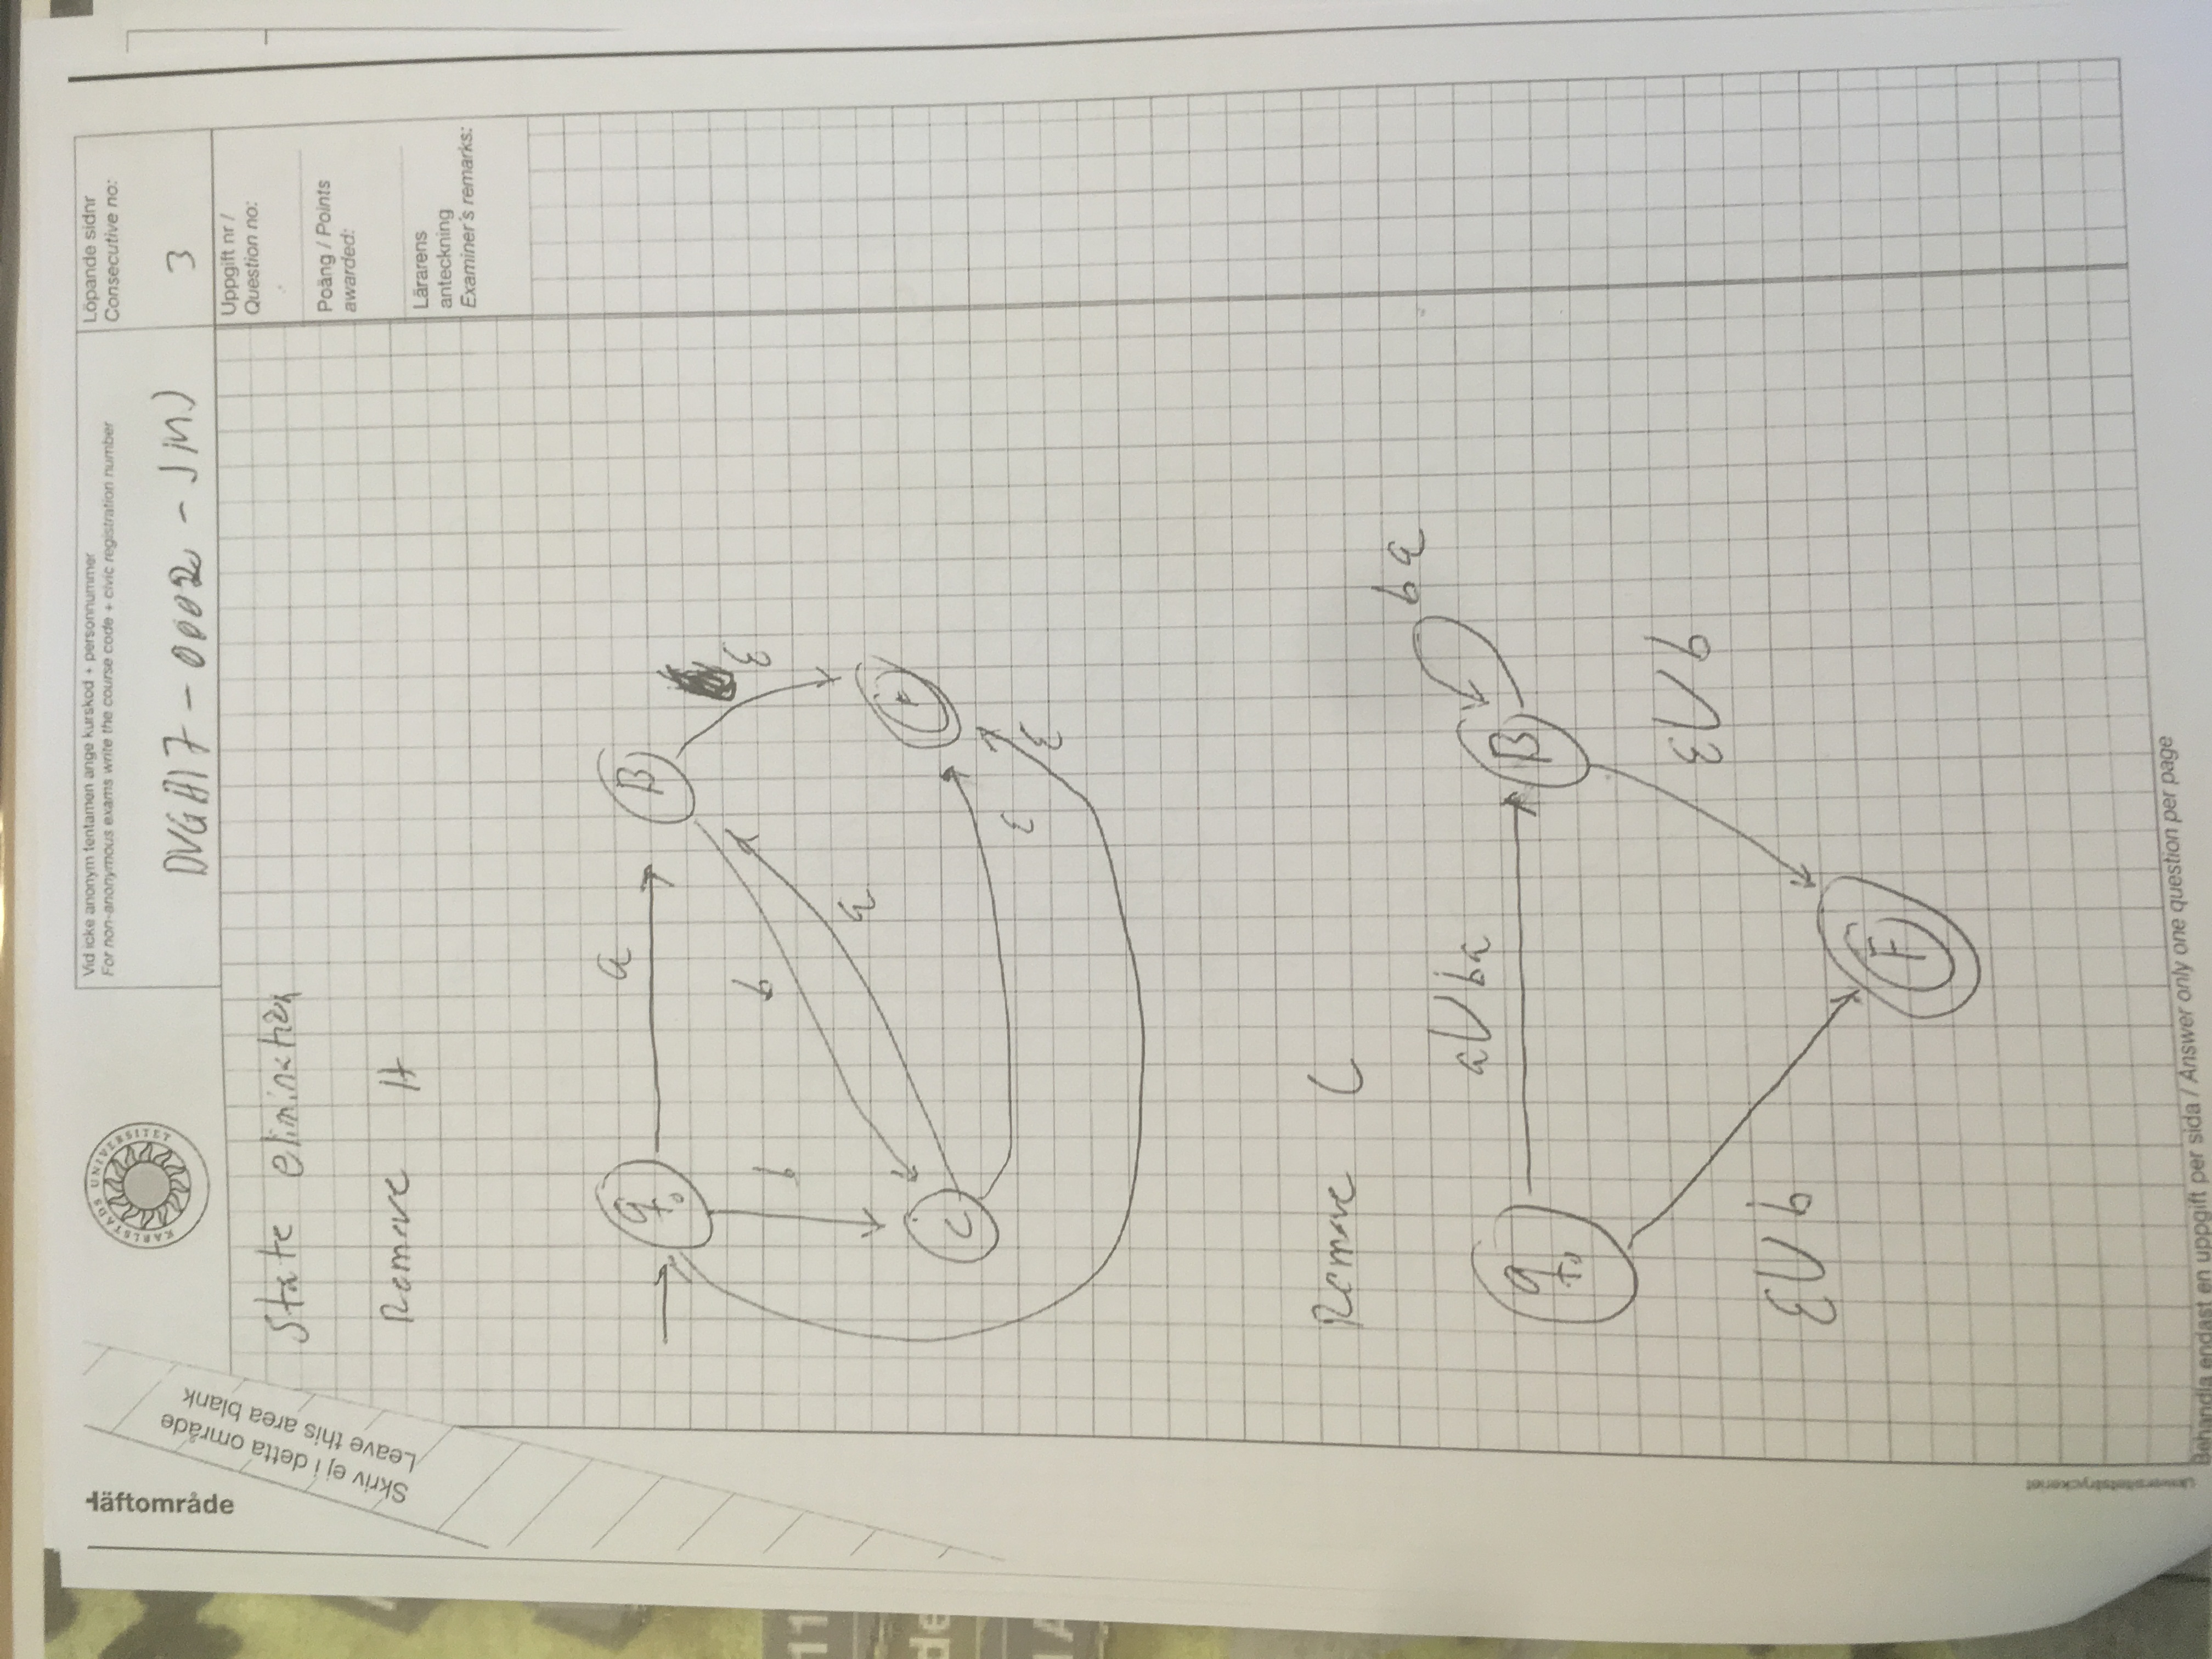 Häftområde
Skriv ej i detta område
Leave this area blank
KARLSTADS UNIVERSITET
Vid icke anonym tentamen ange kurskod + personnummer
For non-anonymous exams write the course code + civic registration number
DVGA17 - 0002 - JMJ
Löpande sidnr
Consecutive no:
3
Uppgift nr /
Question no:
Poäng / Points
awarded:
Lärarens
anteckning
Examiner's remarks:
State elimination
Remove A
q0
a
B
b
b
a
ε
C
F
ε
ε
Remove C
ba
aUba
q0
B
εUb
εUb
F
Universitetstryckeriet
Behandla endast en uppgift per sida / Answer only one question per page
11
de